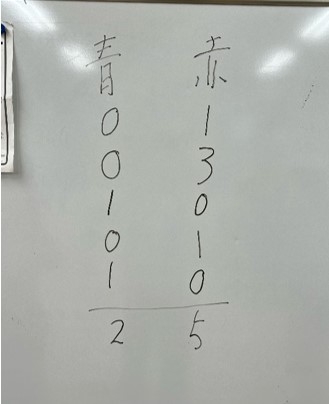 青 赤
0 1
0 3
1 0
0 1
1 0
2 5